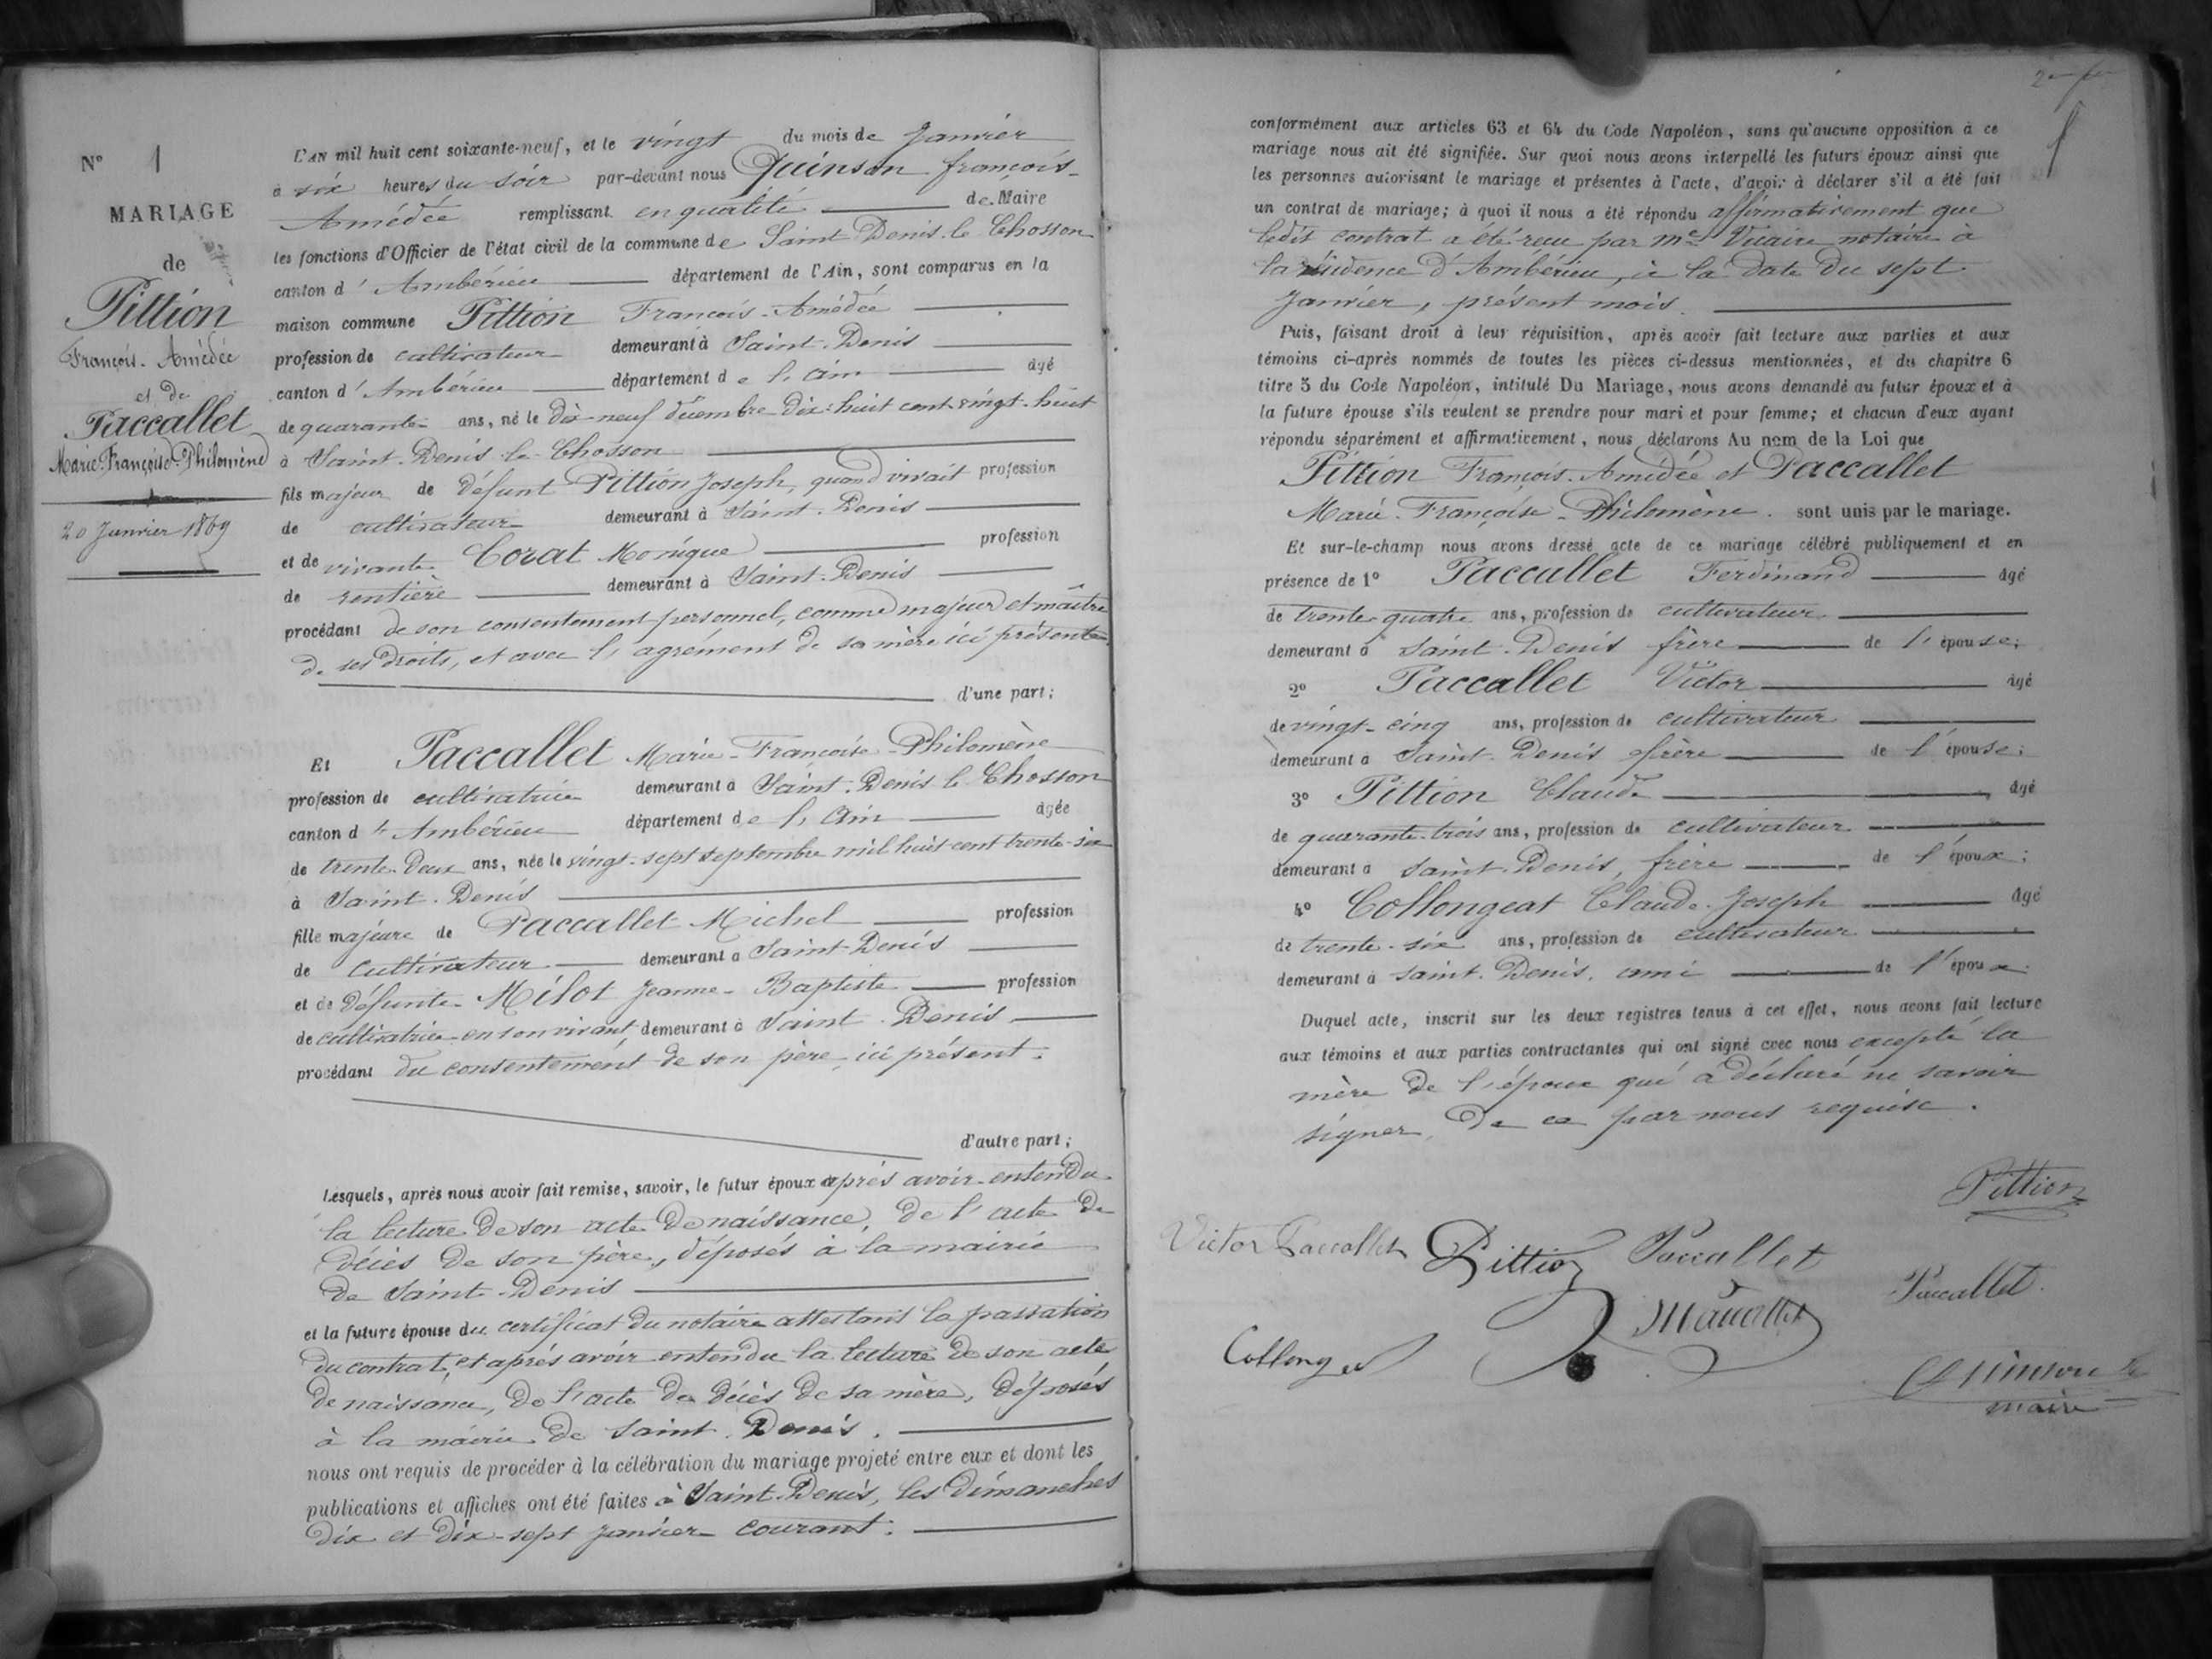 N° 1
MARIAGE
de
Pittion
François-Amédée
et de
Paccallet
Marie-Françoise-Philomène
20 Janvier 1869
L'AN mil huit cent soixante-neuf, et le vingt du mois de Janvier
à six heures du soir par-devant nous Quinson françois-
Amédée remplissant en qualité de Maire
les fonctions d'Officier de l'état civil de la commune de Saint Denis-le Chosson
canton d' Ambérieu département de l'Ain, sont comparus en la
maison commune Pittion François-Amédée
profession de cultivateur demeurant à Saint-Denis
canton d' Ambérieu département de l'Ain âgé
de quarante ans, né le dix-neuf décembre dix-huit cent vingt-huit
à Saint-Denis-le-Chosson
fils majeur de défunt Pittion Joseph, quand vivait profession
de cultivateur demeurant à Saint-Denis
et de vivante Corat Monique profession
de rentière demeurant à Saint-Denis
procédant de son consentement personnel, comme majeur et maître
de ses droits, et avec l'agrément de sa mère ici présente
d'une part;
Et Paccallet Marie-Françoise-Philomène
profession de cultivatrice demeurant à Saint-Denis le Chosson
canton d' Ambérieu département de l'Ain âgée
de trente-deux ans, née le vingt-sept septembre mil huit cent trente-six
à Saint-Denis
fille majeure de Paccallet Michel profession
de cultivateur demeurant à Saint-Denis
et de défunte Milot Jeanne-Baptiste profession
de cultivatrice en son vivant demeurant à Saint-Denis
procédant du consentement de son père ici présent.
d'autre part;
Lesquels, après nous avoir fait remise, savoir, le futur époux après avoir entendu
la lecture de son acte de naissance, de l'acte de
décès de son père, déposés à la mairie
de Saint-Denis
et la future épouse du certificat du notaire attestant la passation
du contrat, et après avoir entendu la lecture de son acte
de naissance, de l'acte de décès de sa mère, déposés
à la mairie de Saint-Denis.
nous ont requis de procéder à la célébration du mariage projeté entre eux et dont les
publications et affiches ont été faites à Saint-Denis, les dimanches
dix et dix-sept janvier courant.
conformément aux articles 63 et 64 du Code Napoléon, sans qu'aucune opposition à ce
mariage nous ait été signifiée. Sur quoi nous avons interpellé les futurs époux ainsi que
les personnes autorisant le mariage et présentes à l'acte, d'avoir à déclarer s'il a été fait
un contrat de mariage; à quoi il nous a été répondu affirmativement que
ledit contrat a été reçu par Me Vuaire notaire à
la résidence d'Ambérieu, à la date du sept
Janvier, présent mois.
Puis, faisant droit à leur réquisition, après avoir fait lecture aux parties et aux
témoins ci-après nommés de toutes les pièces ci-dessus mentionnées, et du chapitre 6
titre 5 du Code Napoléon, intitulé Du Mariage, nous avons demandé au futur époux et à
la future épouse s'ils veulent se prendre pour mari et pour femme; et chacun d'eux ayant
répondu séparément et affirmativement, nous déclarons Au nom de la Loi que
Pittion François-Amédée et Paccallet
Marie-Françoise-Philomène. sont unis par le mariage.
Et sur-le-champ nous avons dressé acte de ce mariage célébré publiquement et en
présence de 1° Paccallet Ferdinand âgé
de trente-quatre ans, profession de cultivateur
demeurant à Saint-Denis frère de l'épouse;
2° Paccallet Victor âgé
de vingt-cinq ans, profession de cultivateur
demeurant à Saint-Denis frère de l'épouse;
3° Pittion Claude âgé
de quarante-trois ans, profession de cultivateur
demeurant à Saint-Denis, frère de l'époux;
4° Collongeat Claude-Joseph âgé
de trente-six ans, profession de cultivateur
demeurant à Saint-Denis, ami de l'époux
Duquel acte, inscrit sur les deux registres tenus à cet effet, nous avons fait lecture
aux témoins et aux parties contractantes qui ont signé avec nous excepté la
mère de l'époux qui a déclaré ne savoir
signer, de ce par nous requise.
Pittion
Victor Paccallet Pittion Paccallet
Paccallet
Quinson
maire